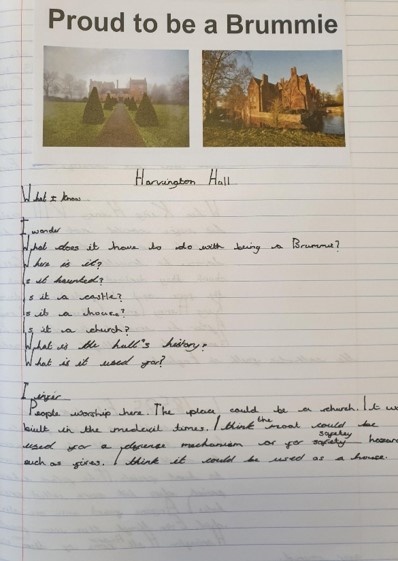 Proud to be a Brummie
Harvington Hall
What I know
I wonder
What does it have to do with being a Brummie?
Where is it?
Is it haunted?
Is it a castle?
Is it a house?
Is it a church?
What is the hall's history?
What is it used for?
I infer
People worship here. The place could be a church. It
built in the medieval times. I think the moat could be
used for a defense mechanism or for safety safety
such as fires. I think it could be used as a house.